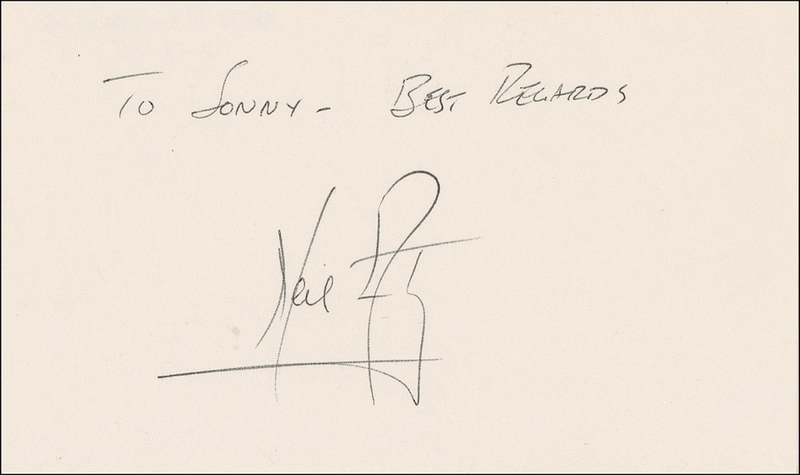 To Sonny - Best Regards
Neil